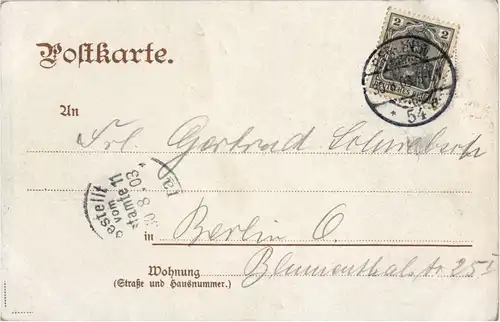 Postkarte.
2
54 a.
An
Frl. Gertrud
Bestellt
vom
Postamte 11
30 8.03
in Berlin O.
Wohnung
(Straße und Hausnummer.)
Blumenthalstr 25 I